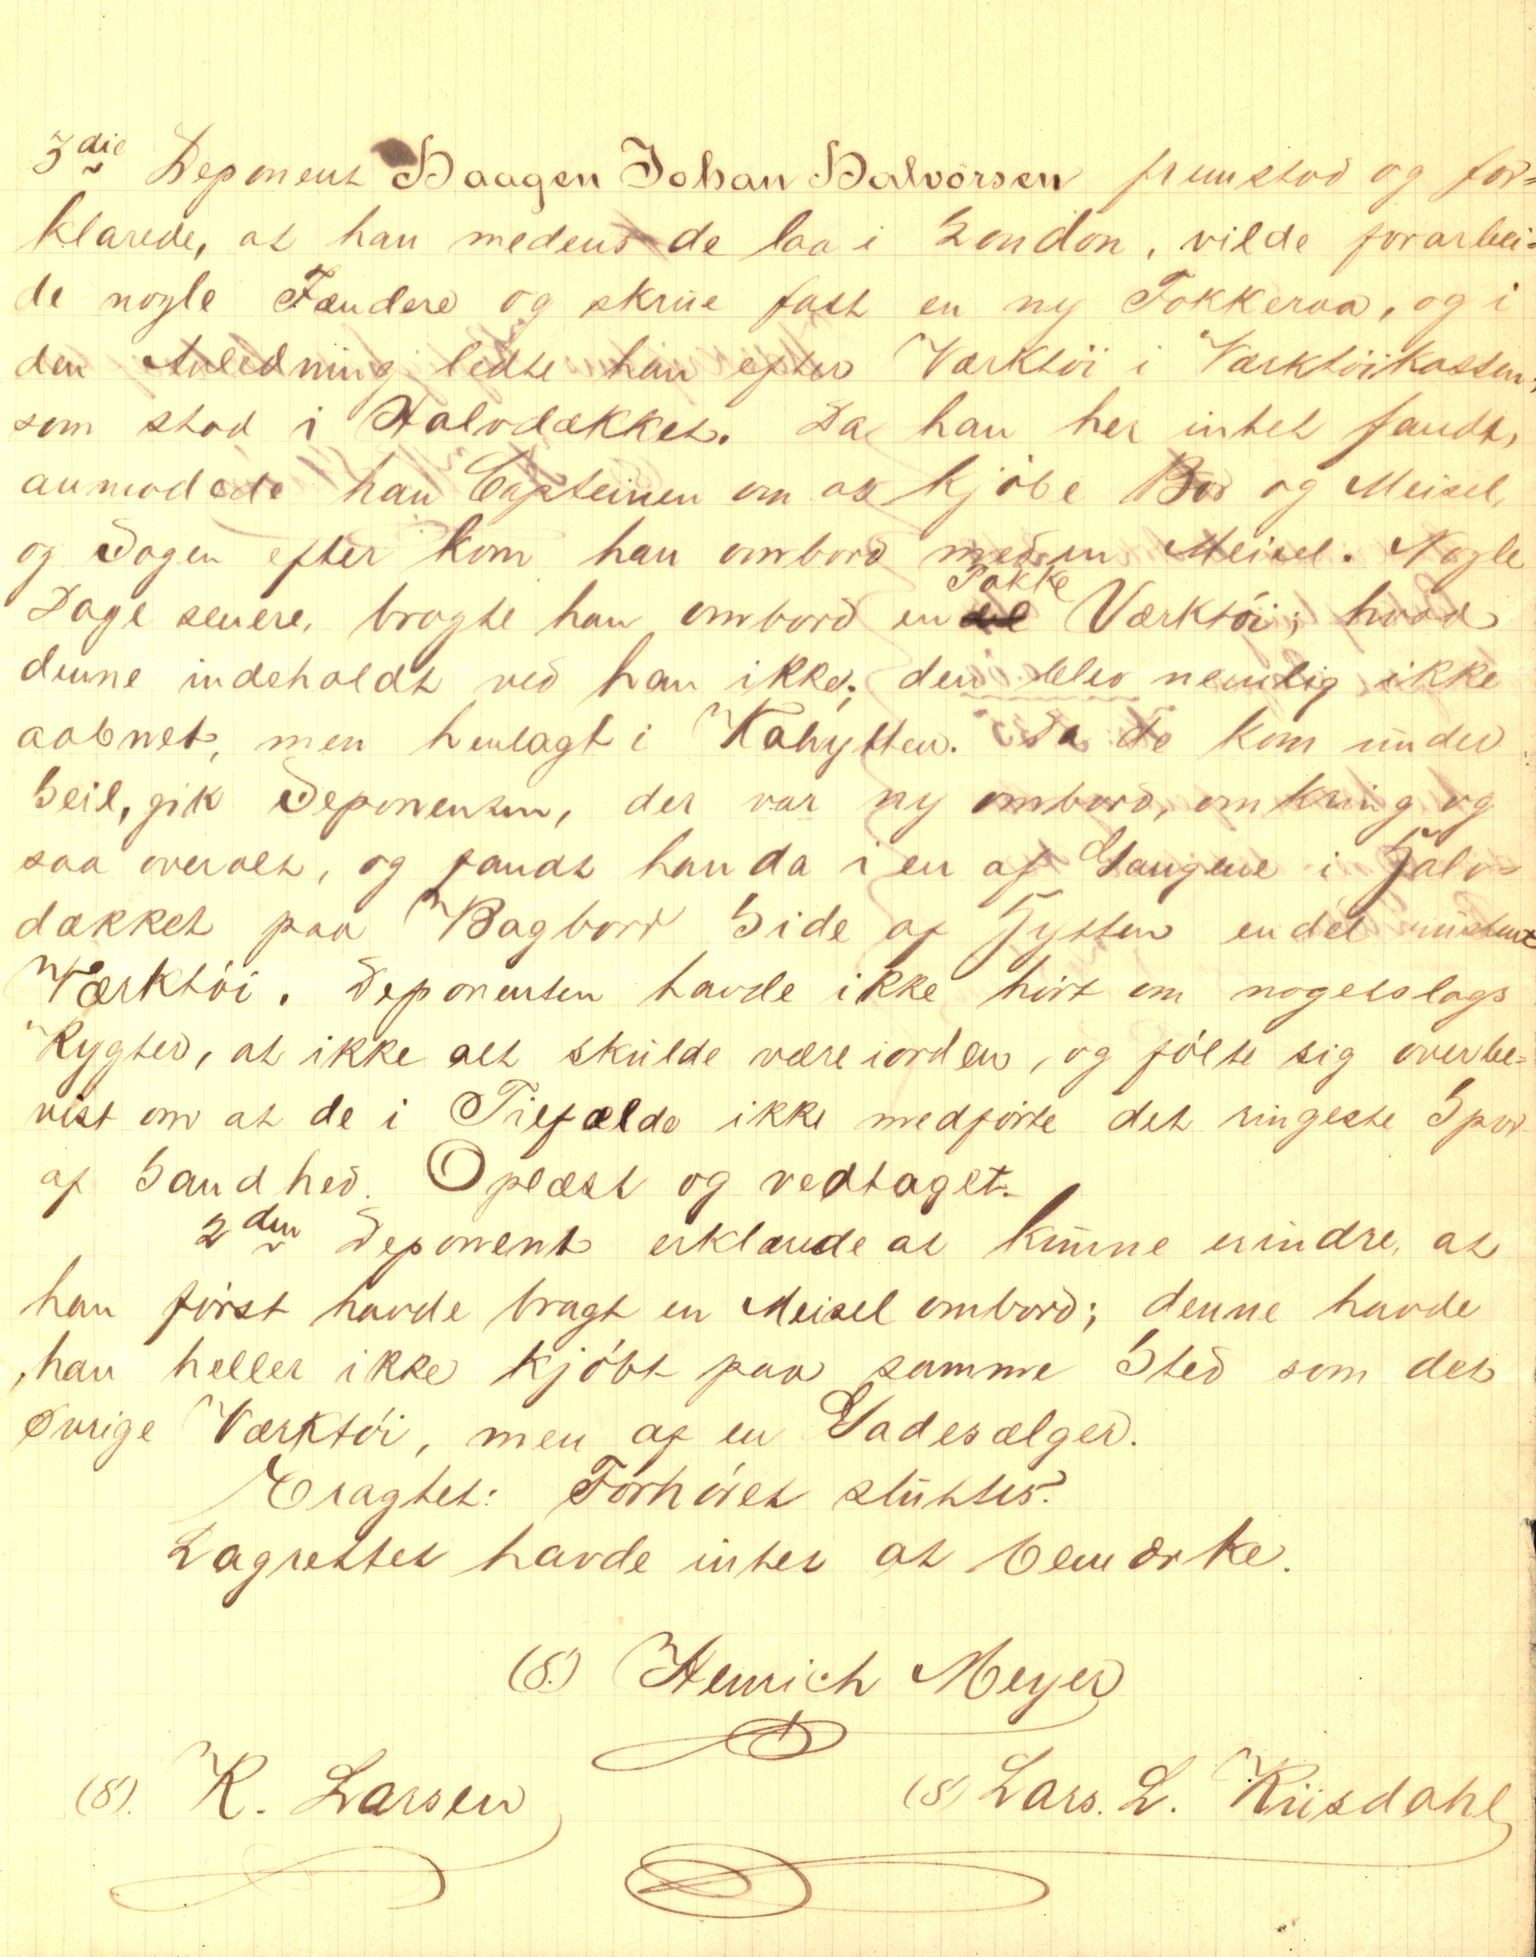 3die Deponent Haagen Johan Halvorsen fremstod og for-
klarede, at han medens de laa i London, vilde forarbei-
de nogle Fændere og skrue fast en ny Fokkeraa, og i
den Anledning ledte han efter Værktöi i Værktöikassen,
som stod i Halvdækket. Da han her intet fandt,
anmodede han Capteinen om at kjöbe Bor og Meisel,
og Dagen efter kom han ombord med en Meisel. Nogle
Dage senere, bragte han ombord en Pakke Værktöi; hvad
denne indeholdt ved han ikke; den blev nemlig ikke
aabnet, men henlagt i Kahytten. Da de kom under
Seil, gik Deponenten, der var ny ombord, omkring og
saa overalt, og fandt han da i en af Gangene i Halv-
dækket paa Bagbord Side af Hytten endel rustent
Værktöi. Deponenten havde ikke hört om nogetslags
Rygter, at ikke alt skulde være iorden, og fölte sig overbe-
vist om at de i Tilfælde ikke medförte det ringeste Spor
af Sandhed. Oplæst og vedtaget.
2den Deponent erklærede at kunne erindre, at
han först havde bragt en Meisel ombord; denne havde
han heller ikke kjöbt paa samme Sted som det
Øvrige Værktöi, men af en Gadesælger.
Eragtet: Forhöret sluttes.
Lagrettet havde intet at bemærke.
(S.) Henrich Meyer
(S). K. Larsen (S) Lars. L. Kiisdahl